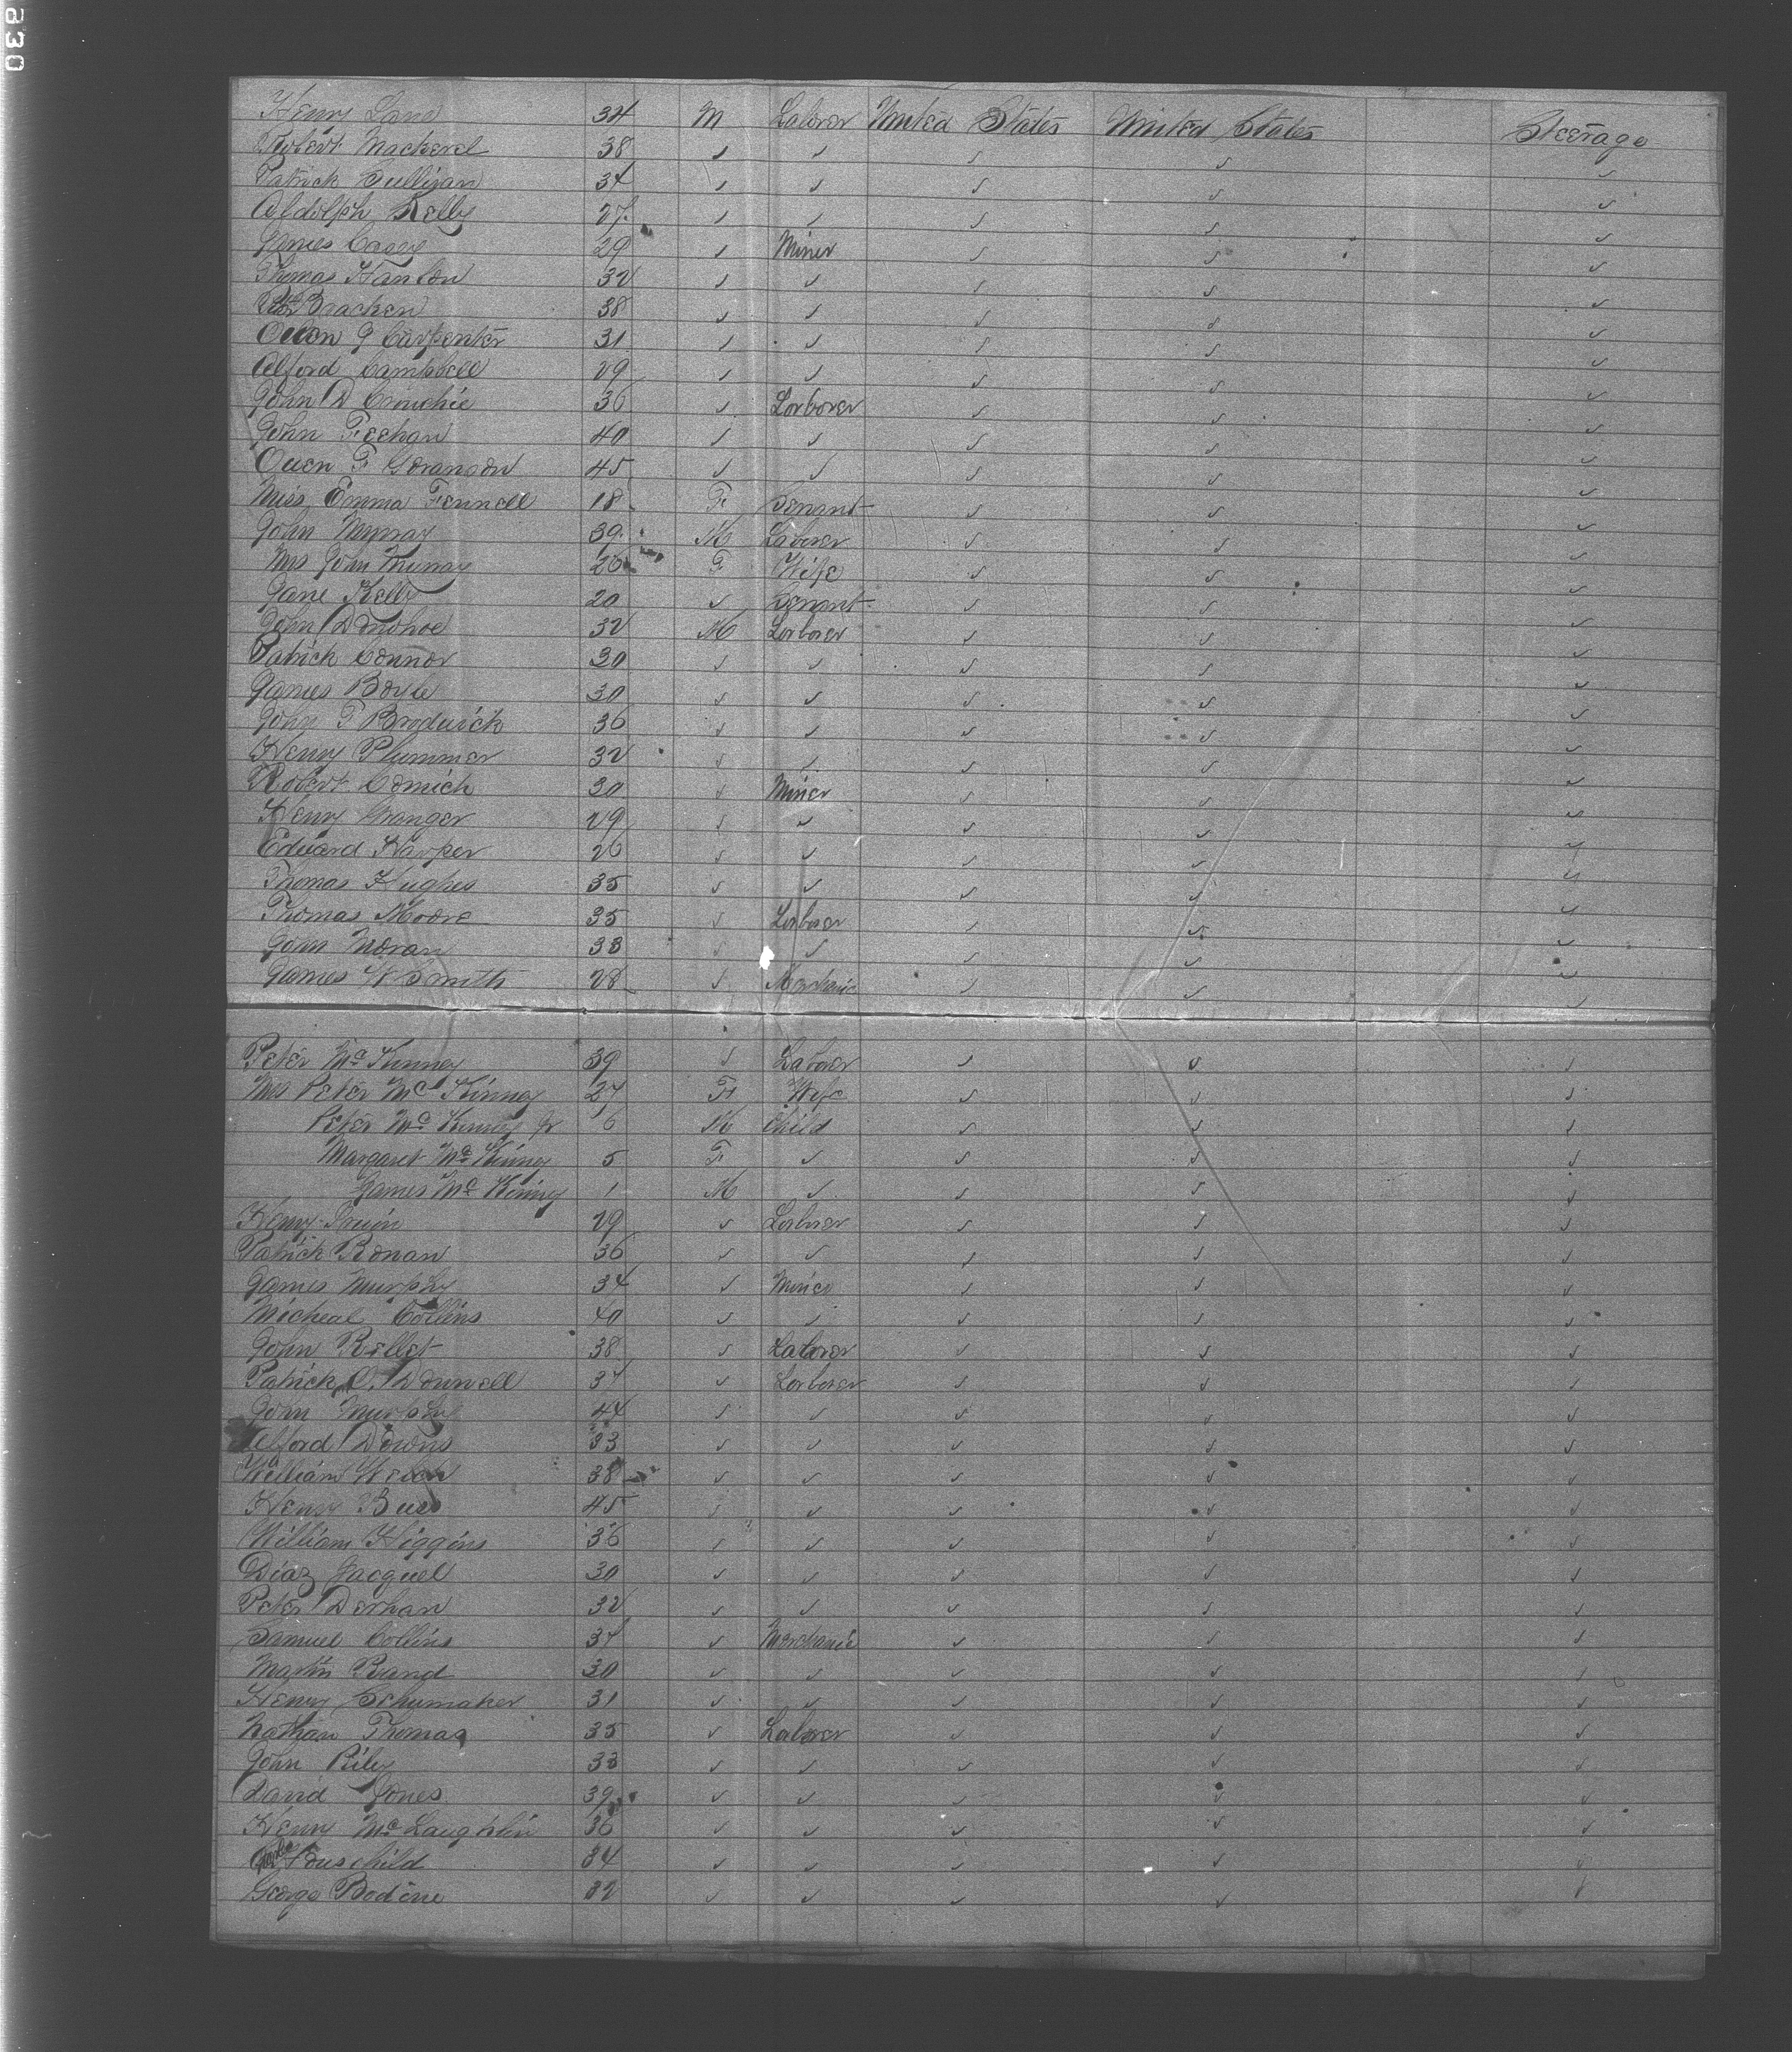 830
Henry Lane 34 M Laborer United States United States Steerage
Robert Mackerel 38 ✓ ✓ ✓ ✓ ✓
Patrick Sullivan 34 ✓ ✓ ✓ ✓ ✓
Aldolph Kelly 27 ✓ ✓ ✓ ✓ ✓
James Casey 29 ✓ Miner ✓ ✓ ✓
Thomas Hanlon 32 ✓ ✓ ✓ ✓ ✓
Bracken 38 ✓ ✓ ✓ ✓ ✓
Owen G Carpenter 31 ✓ ✓ ✓ ✓ ✓
Alford Campbell 29 ✓ ✓ ✓ ✓ ✓
John D Crouchie 36 ✓ Laborer ✓ ✓ ✓
John Feehan 40 ✓ ✓ ✓ ✓ ✓
Owen F Goranson 45 ✓ ✓ ✓ ✓ ✓
Miss Emma Fennell 18 F Servant ✓ ✓ ✓
John Murray 39 M Laborer ✓ ✓ ✓
Mrs John Murray 26 F Wife ✓ ✓ ✓
Jane Kelly 20 ✓ Servant ✓ ✓ ✓
John Donohoe 32 M Laborer ✓ ✓ ✓
Patrick Connor 30 ✓ ✓ ✓ ✓ ✓
James Boyle 30 ✓ ✓ ✓ ✓ ✓
John F Broduick 36 ✓ ✓ ✓ ✓ ✓
Henry Plummer 32 ✓ ✓ ✓ ✓ ✓
Robert Cornich 30 ✓ Miner ✓ ✓ ✓
Henry Granger 29 ✓ ✓ ✓ ✓ ✓
Edward Harper 26 ✓ ✓ ✓ ✓ ✓
Thomas Hughes 35 ✓ ✓ ✓ ✓ ✓
Thomas Moore 35 ✓ Laborer ✓ ✓ ✓
John Moran 33 ✓ ✓ ✓ ✓ ✓
James W Smith 28 ✓ Mechanic ✓ ✓ ✓
Peter Mc Kinney 39 ✓ Laborer ✓ ✓ ✓
Mrs Peter Mc Kinney 27 F Wife ✓ ✓ ✓
Peter Mc Kinney Jr 6 M Child ✓ ✓ ✓
Margaret Mc Kinney 5 F ✓ ✓ ✓ ✓
James Mc Kinney 1 M ✓ ✓ ✓ ✓
Henry 29 ✓ Laborer ✓ ✓ ✓
Patrick Ronan 36 ✓ ✓ ✓ ✓ ✓
James Murphy 34 ✓ Miner ✓ ✓ ✓
Micheal Collins 40 ✓ ✓ ✓ ✓ ✓
John Kellet 38 ✓ Laborer ✓ ✓ ✓
Patrick O. Donnell 37 ✓ Laborer ✓ ✓ ✓
John Murphy 44 ✓ ✓ ✓ ✓ ✓
Alford Downs 33 ✓ ✓ ✓ ✓ ✓
William Welch 38 ✓ ✓ ✓ ✓ ✓
Henry 45 ✓ ✓ ✓ ✓ ✓
William Higgins 36 ✓ ✓ ✓ ✓ ✓
Diaz Jacquel 30 ✓ ✓ ✓ ✓ ✓
Peter Derhan 32 ✓ ✓ ✓ ✓ ✓
Samuel Collins 37 ✓ Mechanic ✓ ✓ ✓
Martin Rand 30 ✓ ✓ ✓ ✓ ✓
Henry Schumaker 31 ✓ ✓ ✓ ✓ ✓
Nathan Thomas 35 ✓ Laborer ✓ ✓ ✓
John Riley 33 ✓ ✓ ✓ ✓ ✓
David Jones 39 ✓ ✓ ✓ ✓ ✓
Henry Mc Laughlin 36 ✓ ✓ ✓ ✓ ✓
Houschild 34 ✓ ✓ ✓ ✓ ✓
George Bodine 32 ✓ ✓ ✓ ✓ ✓